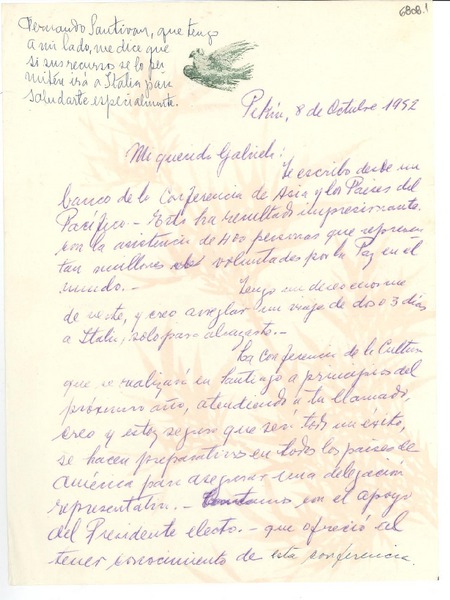 Fernando Santivan, que tengo
a mi lado, me dice que
si sus recursos se lo per
miten irá a Italia para
saludarte especialmente.
6808.1
Pekin, 8 de Octubre, 1952
Mi querida Gabriela:
Te escribo desde un
banco de la Conferencia de Asia y los Paises del
Pacífico.- Esto ha resultado impresionante
con la asistencia de 400 personas que represen
tan millones de voluntades por la Paz en el
mundo.-
Tengo un deseo enorme
de verte, y creo arreglar un viaje de dos o 3 dias
a Italia, sólo para
La conferencia de la Cultura
que se realizará en Santiago a principios del
próximo año, atendiendo a tu llamado,
creo y estoy seguro que será todo un éxito,
se hacen preparativos en todos los paises de
America para asegurar una delegacion
representativa.- con el apoyo
del Presidente electo.- que ofreció al
tener conocimiento de esta conferencia.